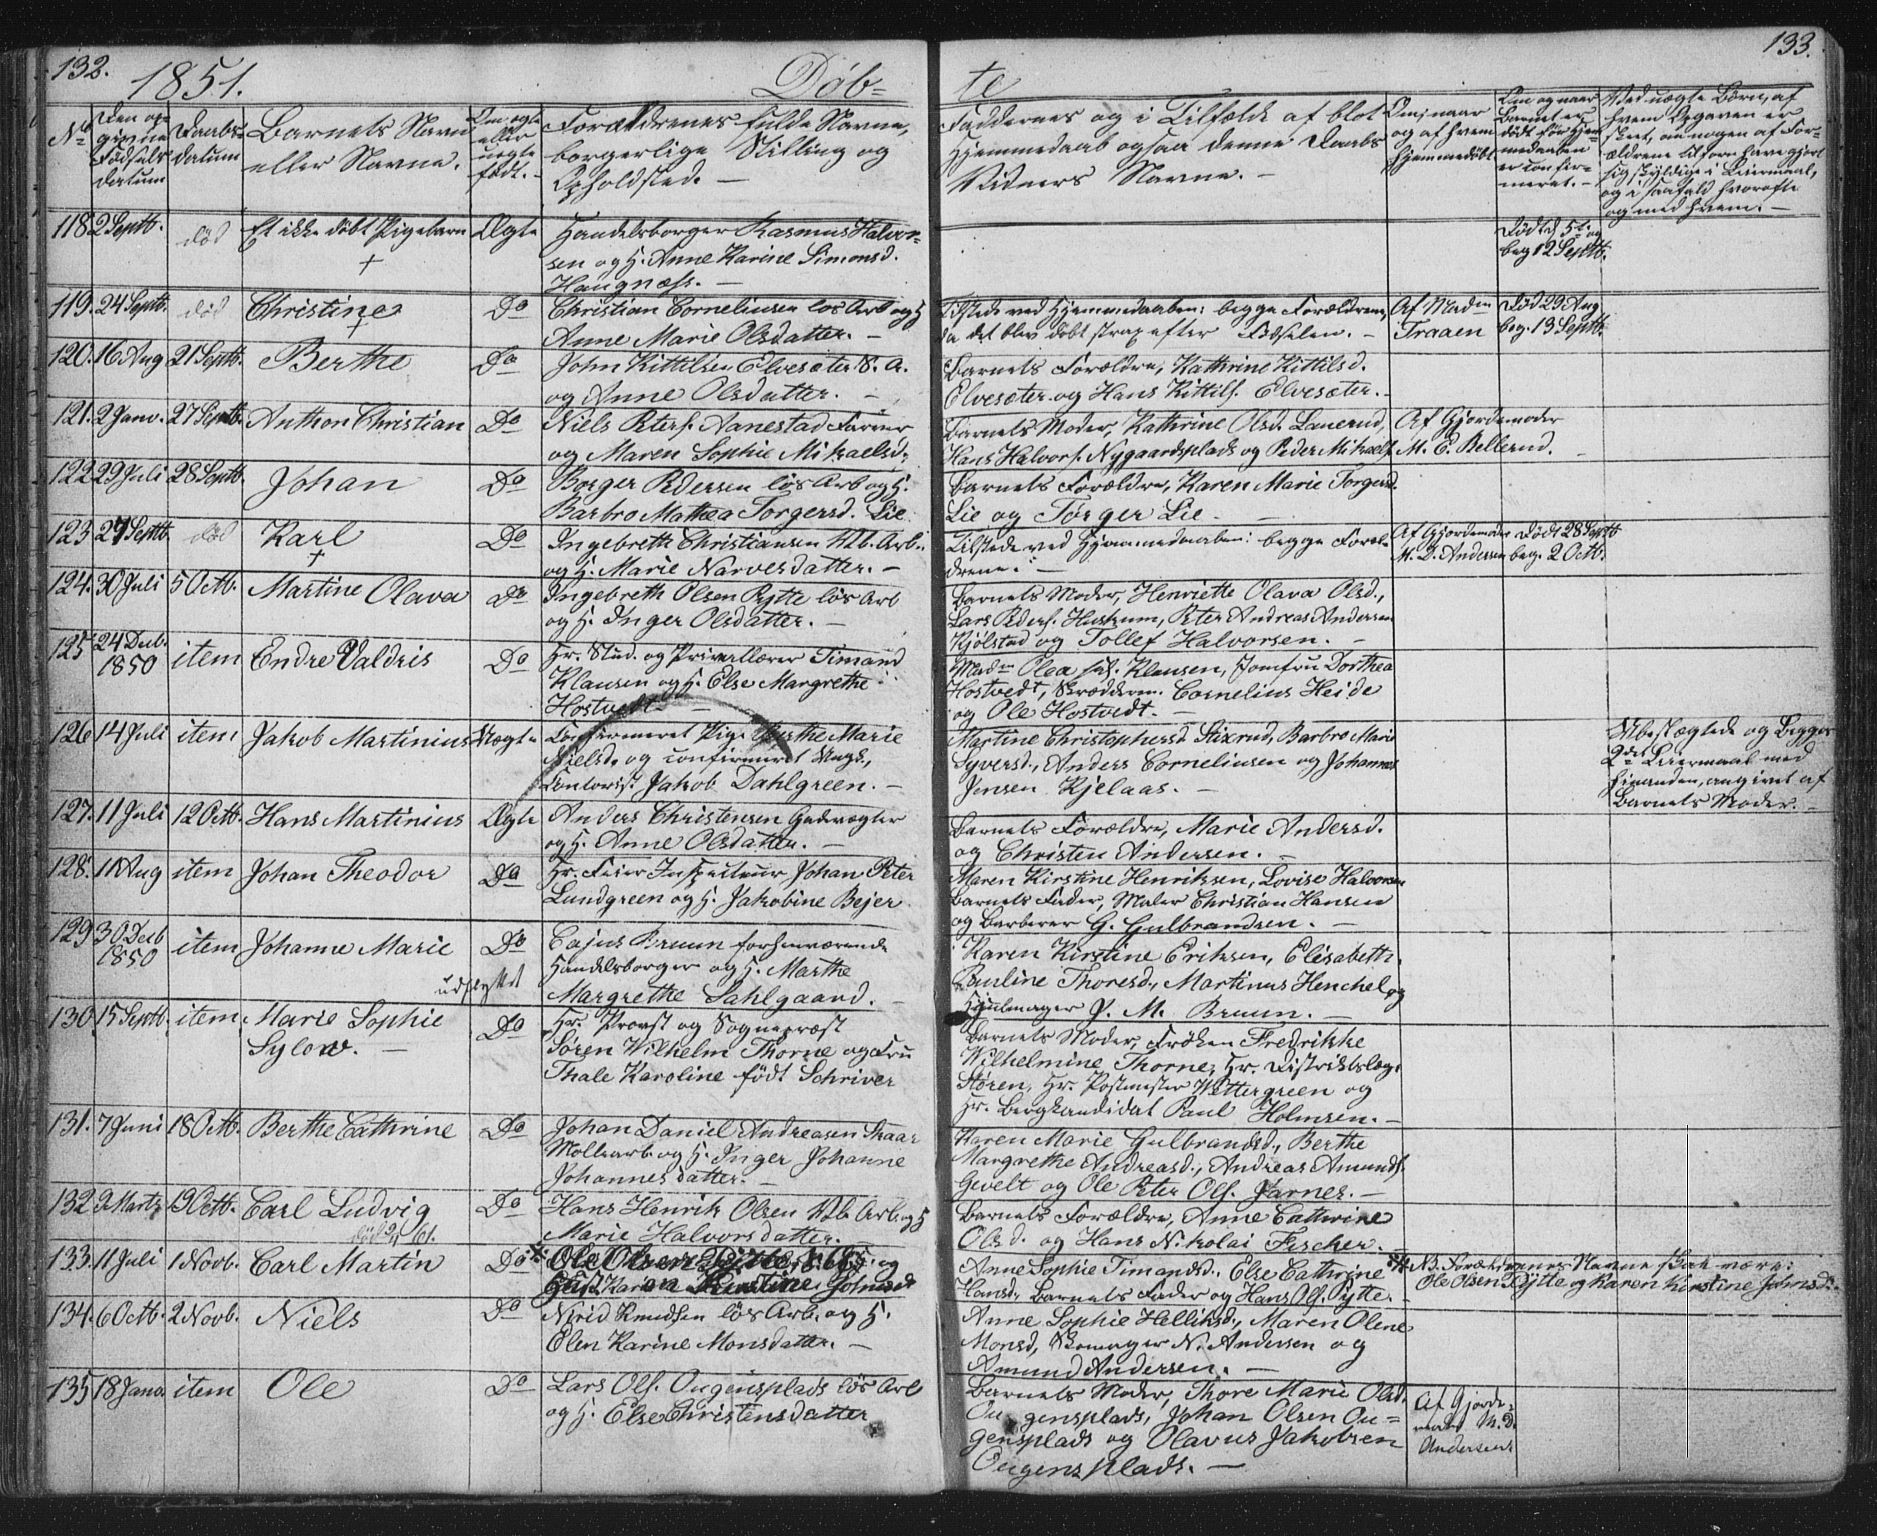 132.
1851.
Döb-
No
Den op-
givne
Födsels
datum
Daabs-
datum
Barnets Navn
eller Navne.
Om ægte
eller
uægte
född.
Forældrenes fulde Navne,
borgerlige Stilling og
Opholdsted.
118. 2 Septb. död Et ikke döbt Pigebarn Ægte Handelsborger Rasmus Halvor-
sen og H. Anne Karine Simonsd.
Haugnæss.
119. 24 Septb. död Christine Do Christian Corneliusen lös Arb og H
Anne Marie Olsdatter.
120. 16 Aug 21 Septb. Berthe Do John Kittilsen Elvesæter S. A.
og Anne Olsdatter.
121. 2 Janv. 27 Septb. Anthon Christian Do Niels Peters. Aanestad Farver
og Maren Sophie Mikaelsd.
122. 29 Juli 28 Septb. Johan Do Borger Pedersen lös Arb og H.
Barbro Mathea Torgersd. Lie.
123 27 Septb död Karl Do Ingebreth Christiansen Arb.
og H. Marie Narvesdatter.
124. 30 Juli 5 Octb. Martine Olava Do Ingebreth Olsen Pytte lös Arb
og H. Inger Olsdatter.
125. 24 Decb.
1850 item Endre Valdris Do Hr. Stud. og Privatlærer Timand
Klausen og H. Else Margrethe
Hostvedt.
126. 14 Juli item Jakob Martinius Uægte Confirmeret Pige Berthe Marie
Nielsd. og confirmeret Ungk.,
Contorist Jakob Dahlgreen.
127. 11 Juli 12 Octb. Hans Martinius Ægte Anders Christensen Gadevægter
og H. Anne Olsdatter.
128. 11 Aug item Johan Theodor Do Hr. Feier Inspecteur Johan Peter
Lundgreen og H. Jakobine Bejer
129 30 Decb
1850 item Johanne Marie Do Cajus Bruun forhenværende
Handelsborger og H. Marthe
udflyttet
Margrethe Sahlgaard.
130. 15 Septb. item Marie Sophie
Sylow. Do Hr. Provst og Sognepræst
Sören Wilhelm Thorne og Fru
Thale Karoline född Schriver
131. 7 Juni 18 Octb. Berthe Cathrine Do Johan Daniel Andreasen Skaar
Möllearb og H. Inger Johanne
Johannesdatter.
132 2 Marts 19 Octb. Carl Ludvig Do Hans Henrik Olsen Arb. og H
Marie Halvorsdatter.
133. 11 Juli 1 Novb. Carl Martin Do
134. 6 Octb. 2 Novb. Niels Do Nirid Knudsen lös Arb. og H.
Elen Karine Monsdatter.
135 18 Janv. item Ole Do Lars Ols. Ougensplads lös Arb
og H. Else Christensdatter
133.
te
Faddernes og i Tilfælde af blot
Hjemmedaab ogsaa denne Daabs
Vidners Navne.
Om, naar
og af hvem
hjemmedöbt
Om og naar
Barnet er
dödt för Hjem-
medaaben
er confir-
meret.
Ved uægte Börn, af
hvem Opgaven er
skeet, om nogen af For-
ældrene tilforn have gjort
sig skyldige i Leiermaal,
og i saafald hvorofte
og med hvem.
Död d. 5t. og
beg 12 Septb.
Tilstede ved Hjemmedaaben: begge Forældrene, Af Madm Död 29 Aug
da det blev döbt strax efter Födselen. Traaen beg. 13 Septb.
Barnets Forældre, Kathrine Kittilsd.
Elvesæter og Hans Kittils. Elvesæter.
Barnets Moder, Kathrine Olsd. Lauerud, Af Gjordemoder
Hans Halvors. Nygaardsplads og Peder Mikaels. M. E. Bellerud.
Barnets Forældre, Karen Marie Torgersd.
Lie og Törger Lie.
Tilstede ved Hjemmedaaben: begge Foræl- Af Gjordemoder Död 28 Septb
drene. M. D. Andersen beg. 2 Octb.
Barnets Moder, Henriette Olava Olsd.,
Lars Peders. Huskum, Peter Andreas Andersen
Kjölstad og Tollef Halvorsen.
Madm Olea sal. Klausen, Jomfru Dorthea
Hostvedt, Skrædderm. Cornelius Heide
og Ole Hostvedt.
Martine Christophersd. Stixrud, Barbro Marie
Syversd., Anders Corneliusen og Johannes
Jensen Kjelaas.
Ubeslægtede og Begges
2det Leiermaal med
hinanden, angivet af
Barnets Moder.
Barnets Forældre, Marie Andersd.
og Christen Andersen.
Maren Kirstine Henriksen, Lovise Halvorsen
Barnets Fader, Maler Christian Hansen
og Barberer G. Gulbrandsen.
Karen Kirstine Eriksen, Elisabeth
Pauline Thoresd., Martinus Henchel og
Hjulmager P. M. Bruun.
Barnets Moder, Fröken Fredrikke
Wilhelmine Thorne, Hr. Distriktslæge
Stören, Hr. Postmester Wettergreen og
Hr. Bergkandidat Paul Holmsen.
Karen Marie Gulbrandsd., Berthe
Margrethe Andreasd., Andreas Amunds.
Gevelt og Ole Peter Ols. Jarnes.
Barnets Forældre, Anne Cathrine
Olsd. og Hans Nikolai Fischer.
Anne Sophie Timandsd., Else Cathrine
Hansd., Barnets Fader og Hans Ols. Pytte.
NB. Forældrenes Navne skal være:
Ole Olsen Pytte og Karen Kirstine Johnsd.
Anne Sophie Helliksd., Maren Oline
Monsd, Skomager N. Andersen og
Amund Andersen.
Barnets Moder, Thore Marie Olsd.
Ougensplads, Johan Olsen Ou-
gensplads og Olavus Jakobsen
Ougensplads.
Af Gjorde-
moder M. D.
Andersen